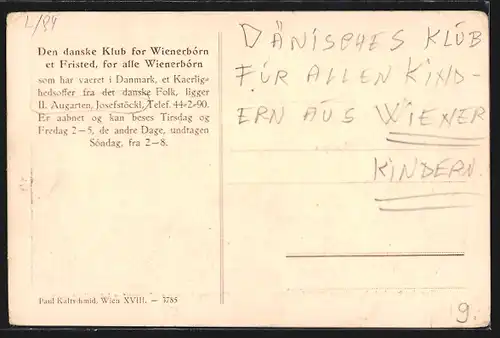 L/94
Den danske Klub for Wienerbórn
et Fristed, for alle Wienerbórn
som har vaeret i Danmark, et Kaerlig-
hedsoffer fra det danske Folk, ligger
II. Augarten, Josefstöckl, Telef. 44-2-90.
Er aabnet og kan beses Tirsdag og
Fredag 2—5, de andre Dage, undtagen
Sóndag, fra 2—8.
Paul Kaltschmid, Wien XVIII. — 3785
DÄNISCHES KLUB
FÜR ALLEN KIND-
ERN AUS WIENER
KINDERN
9.